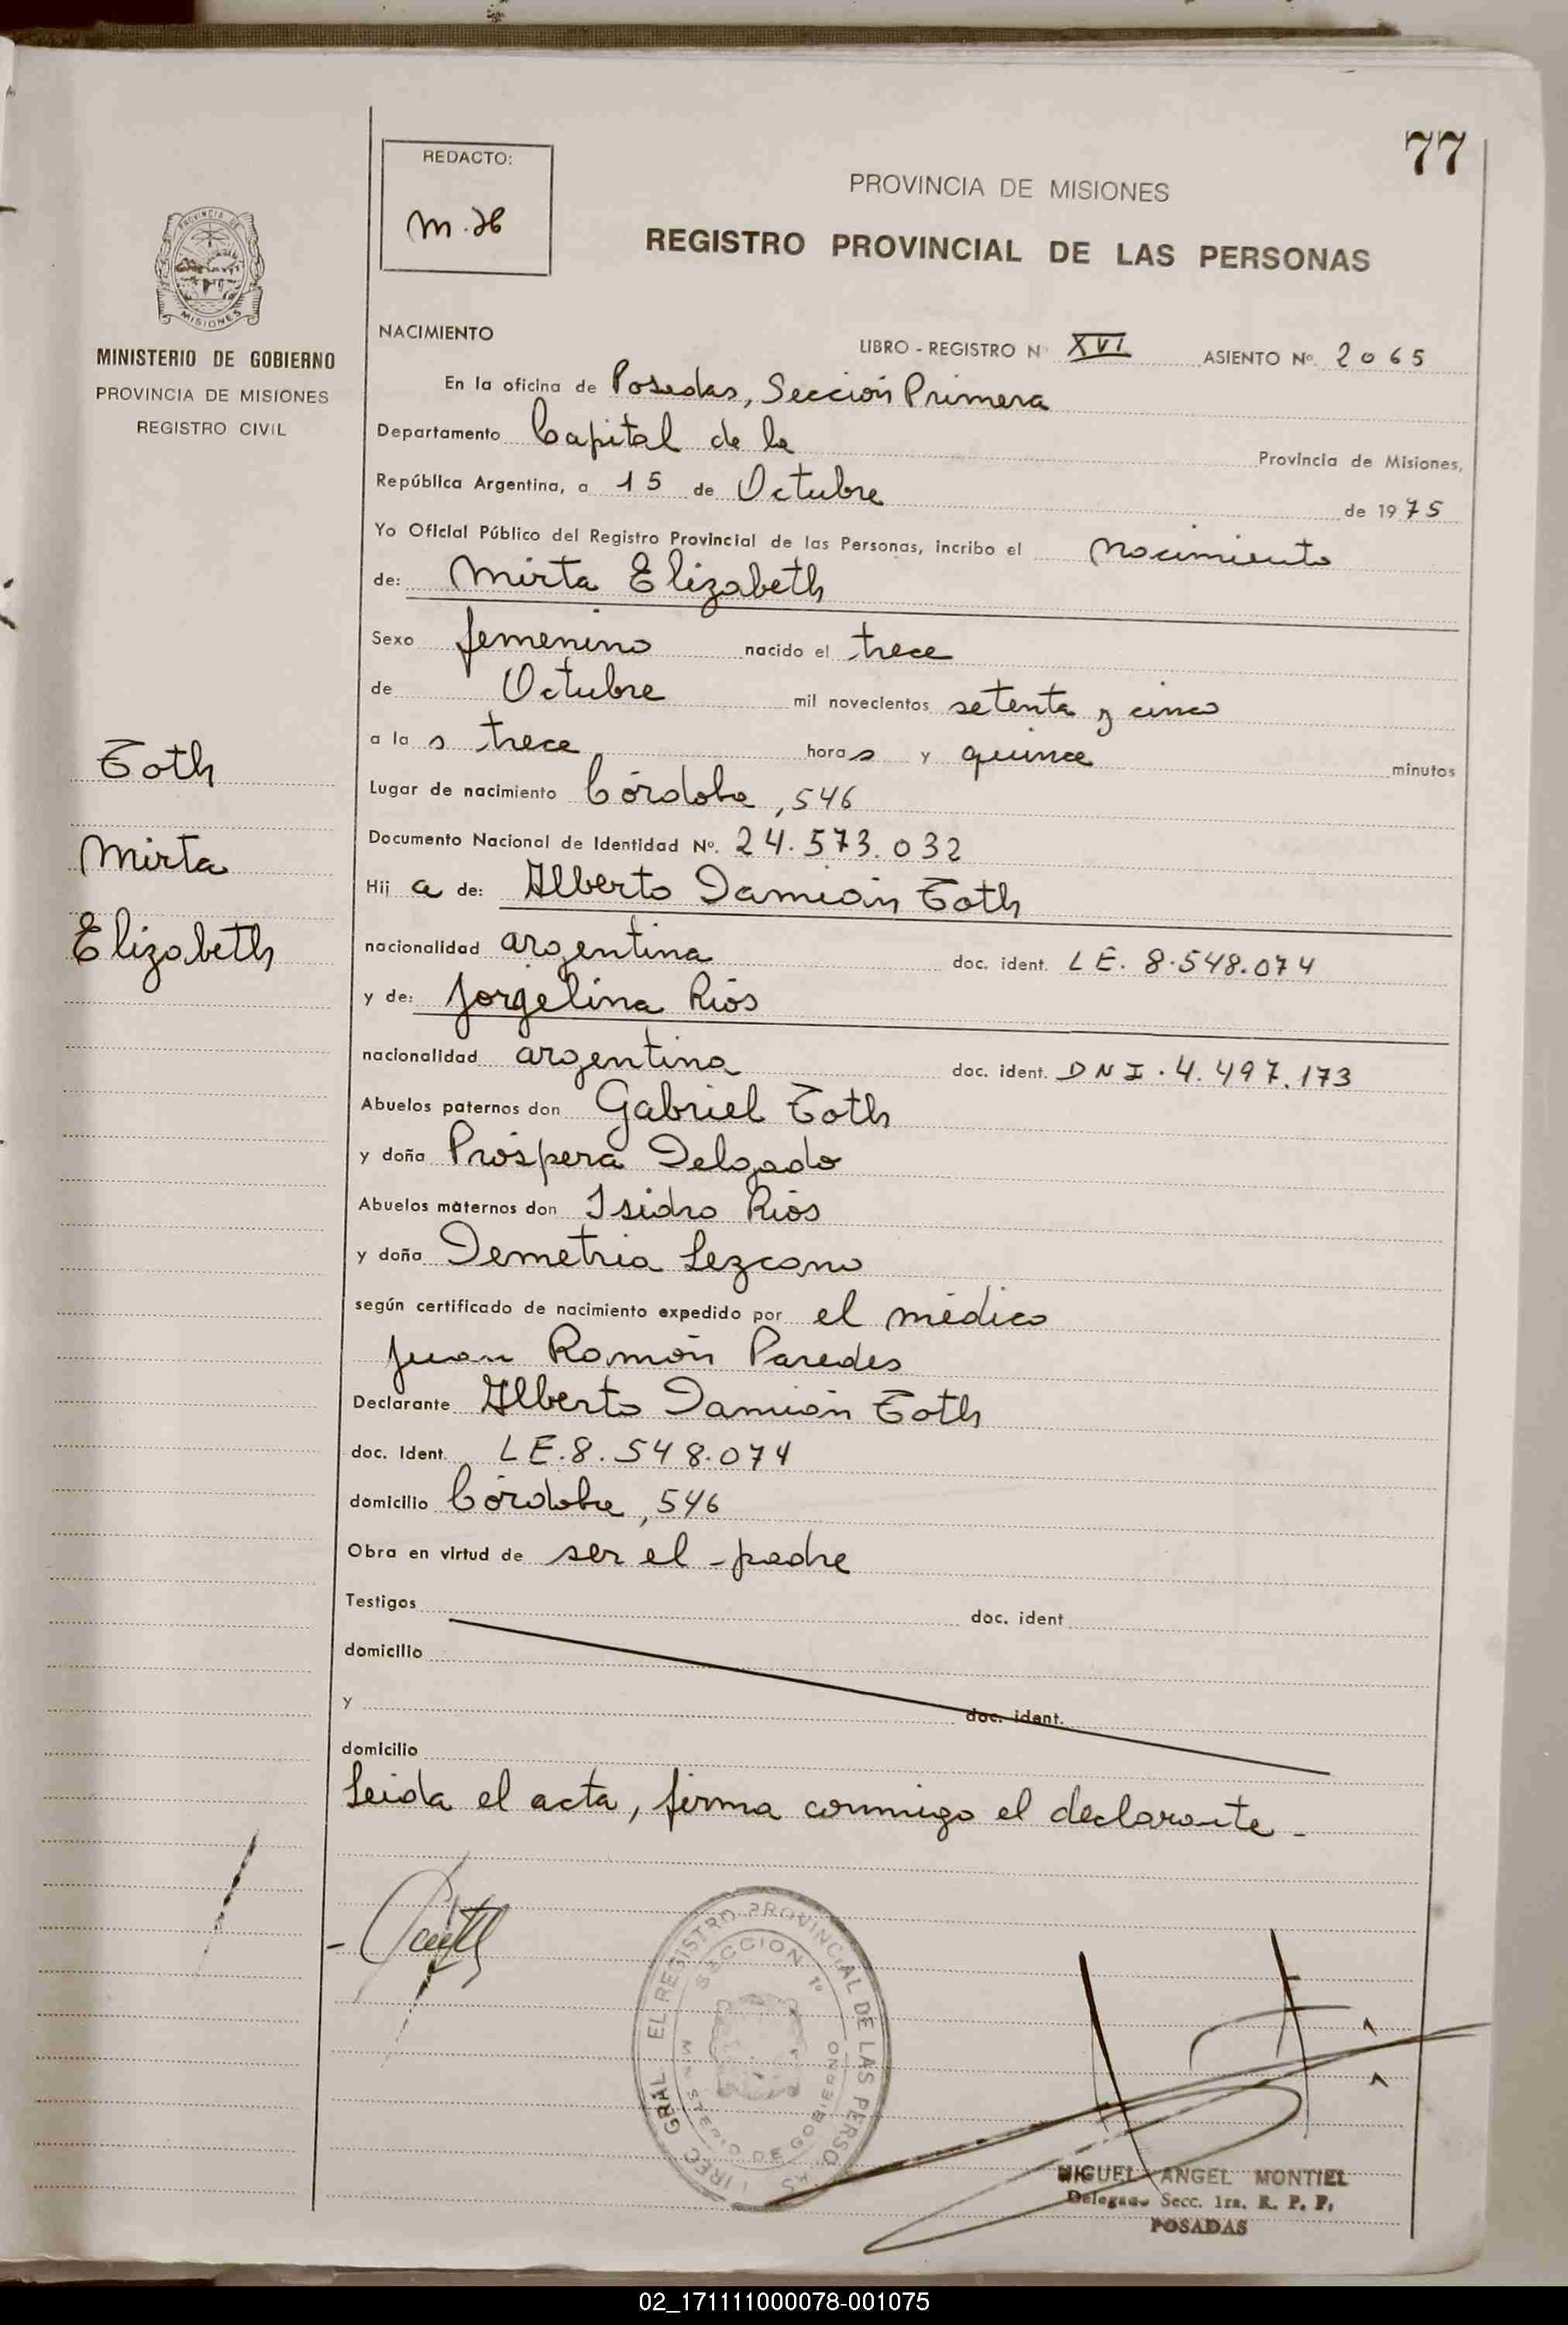 77
REDACTO:
m.H
PROVINCIA DE MISIONES
REGISTRO PROVINCIAL DE LAS PERSONAS
PROVINCIA DE
MISIONES
MINISTERIO DE GOBIERNO
PROVINCIA DE MISIONES
REGISTRO CIVIL
NACIMIENTO
LIBRO - REGISTRO Nº XVI ASIENTO Nº 2065
En la oficina de Posadas, Sección Primera
Departamento Capital de la Provincia de Misiones,
República Argentina, a 15 de Octubre de 1975
Yo Oficial Público del Registro Provincial de las Personas, incribo el nacimiento
de: Mirta Elizabeth
Sexo femenino nacido el trece
de Octubre mil novecientos setenta y cinco
a la s trece hora s y quince minutos
Lugar de nacimiento Córdoba, 546
Documento Nacional de Identidad Nº. 24.573.032
Hij a de: Alberto Damián Toth
nacionalidad argentina doc. ident. LE. 8.548.074
y de: Jorgelina Ríos
nacionalidad argentina doc. ident. DNI. 4.497.173
Abuelos paternos don Gabriel Toth
y doña Próspera Delgado
Abuelos maternos don Isidro Ríos
y doña Demetria Lezcano
según certificado de nacimiento expedido por el médico
Juan Ramón Paredes
Declarante Alberto Damián Toth
doc. ident. LE. 8.548.074
domicilio Córdoba, 546
Obra en virtud de ser el padre
Testigos doc. ident
domicilio
y doc. ident.
domicilio
Leída el acta, firma conmigo el declarante.-
Toth
Mirta
Elizabeth
IREC GRAL EL REGISTRO PROVINCIAL DE LAS PERSO AS
SECCION 1º
MINISTERIO DE GOBIERNO
MIGUEL ANGEL MONTIEL
Delegado Secc. 1ra. R. P. P.
POSADAS
02_171111000078-001075